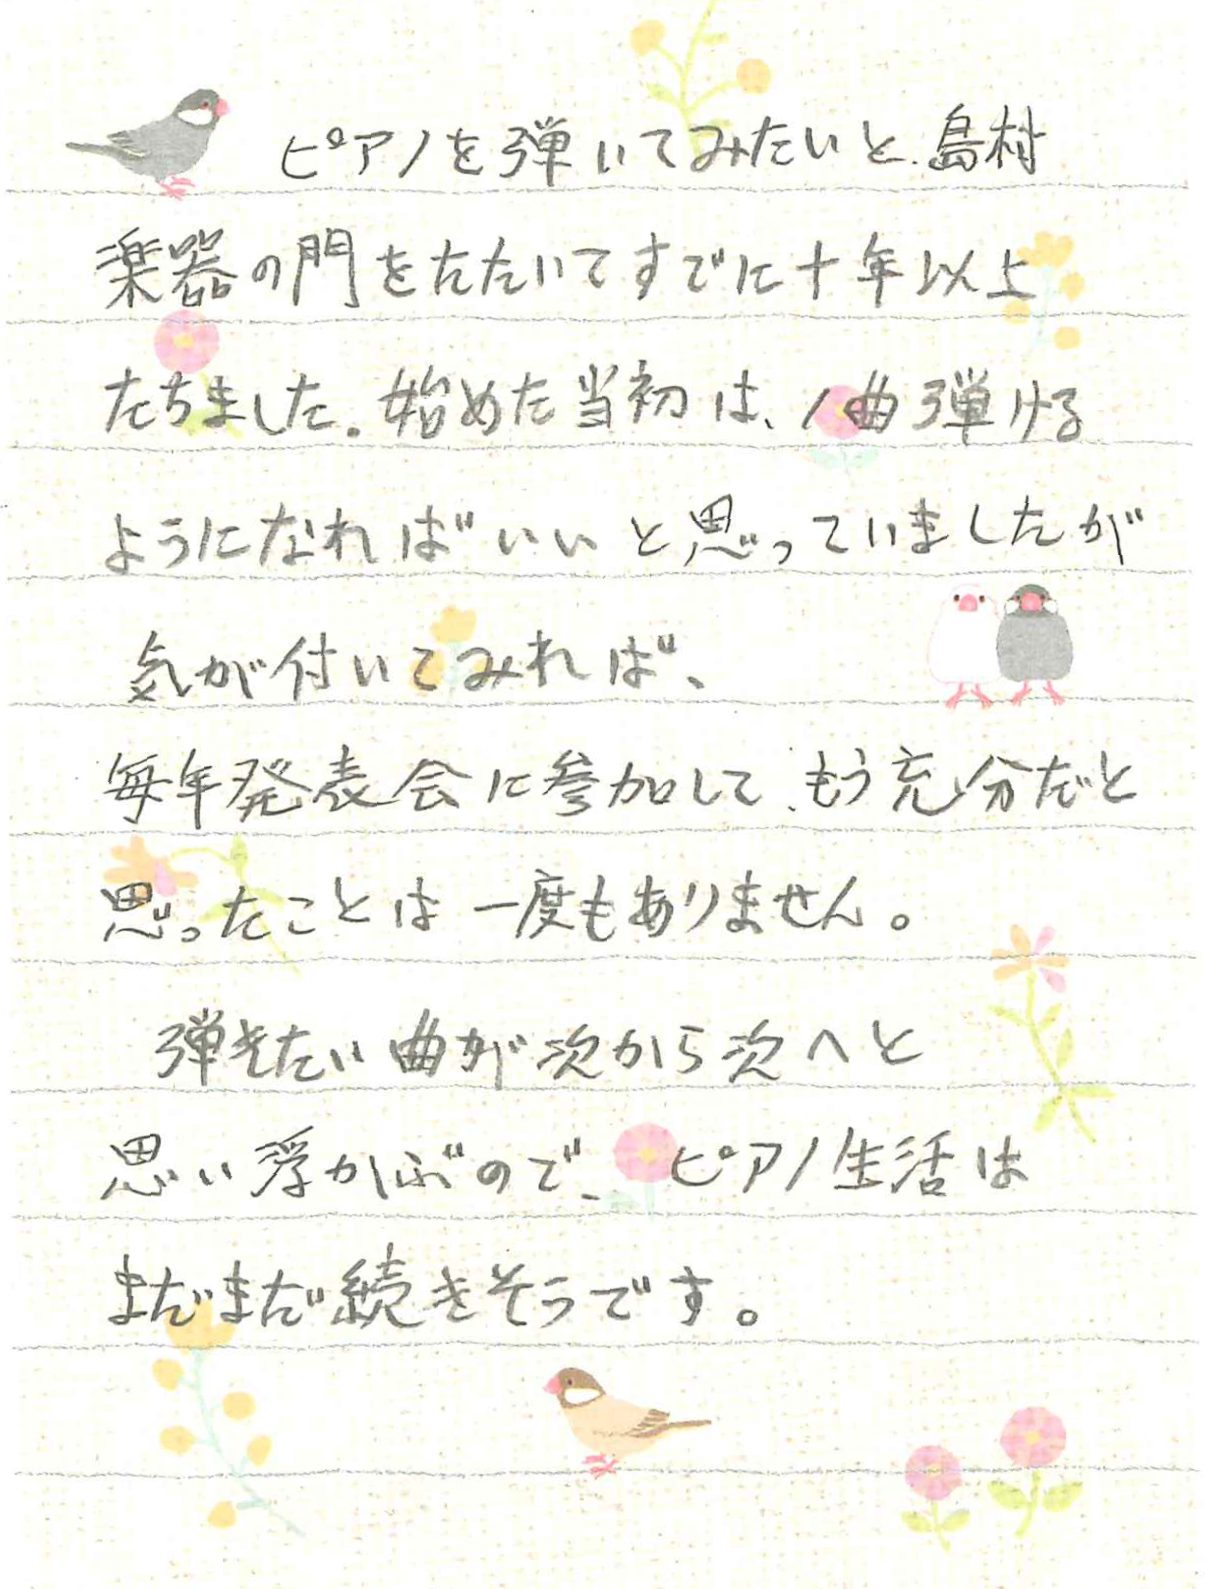 ピアノを弾いてみたいと、島村
楽器の門をたたいてすでに十年以上
たちました。始めた当初は、1曲弾ける
ようになればいいと思っていましたが
気が付いてみれば、
毎年発表会に参加して、もう充分だと
思ったことは一度もありません。
弾きたい曲が次から次へと
思い浮かぶので、ピアノ生活は
まだまだ続きそうです。